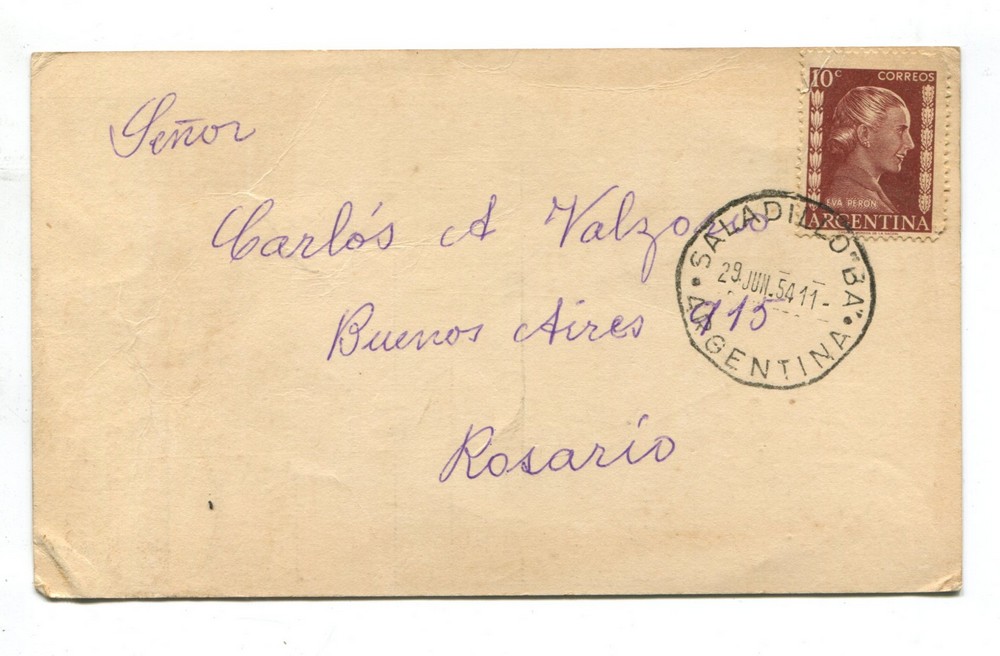 10c CORREOS
EVA PERON
ARGENTINA
Señor
Carlós A
SALADILLO "BA"
29.JUN.54 11-
ARGENTINA
Buenos Aires 715
Rosario